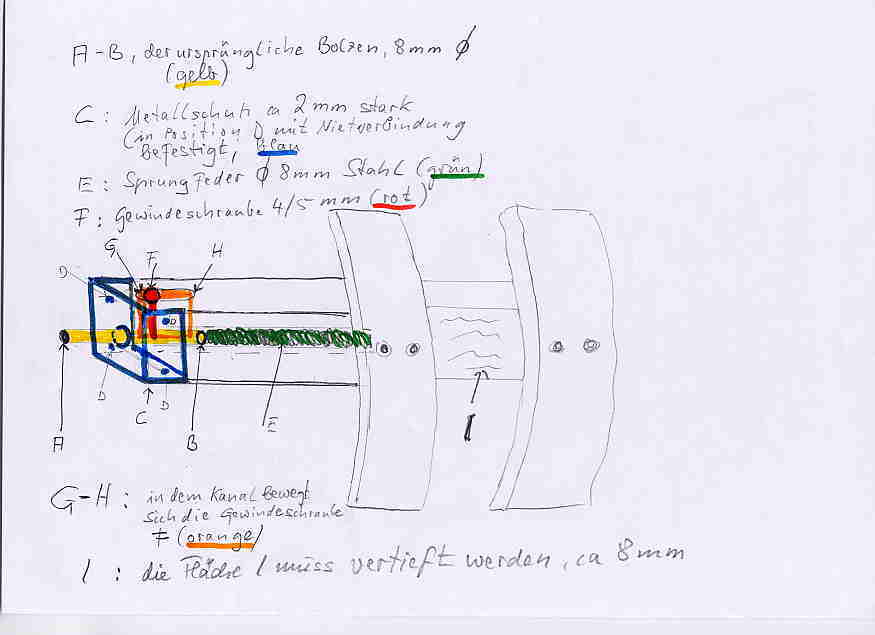 A-B, der ursprüngliche Bolzen, 8mm ϕ
(gelb)
C: Metallschutz ca 2mm stark
(in Position D mit Nietverbindung
befestigt, blau
E: Sprungfeder ϕ 8mm Stahl (grün)
F: Gewindeschraube 4/5 mm (rot)
G
F
H
D
D
D
D
C
A
B
E
I
G-H: in dem Kanal bewegt
sich die Gewindeschraube
F (orange)
I: die Fläche I muss vertieft werden, ca 8mm